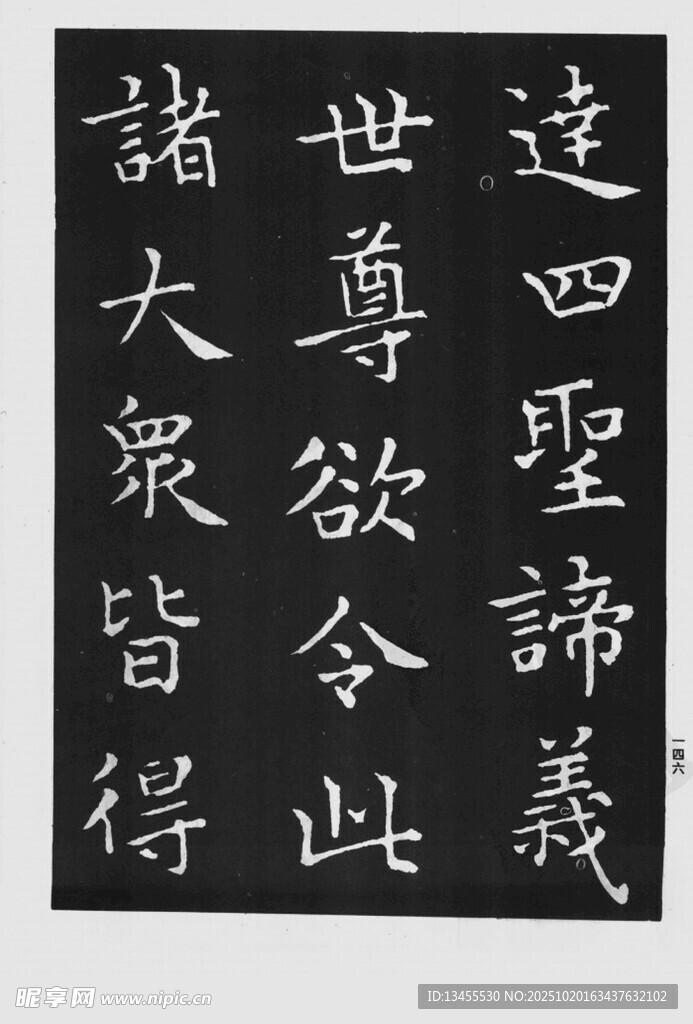 達四聖諦義
世尊欲令此
諸大眾皆得
一四六
昵享网 www.nipic.cn
ID:13455530 NO:20251020163437632102